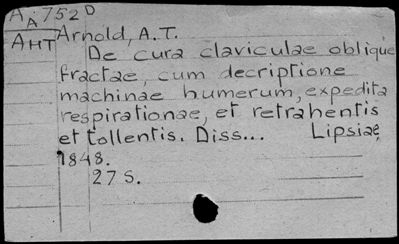 AA 752 D
AHT Arnold, A.T.
De cura claviculae oblique
fractae, cum decriptione
machinae humerum, expedita
respirationae, et retrahentis
et tollentis. Diss... Lipsiae,
1848.
27 S.